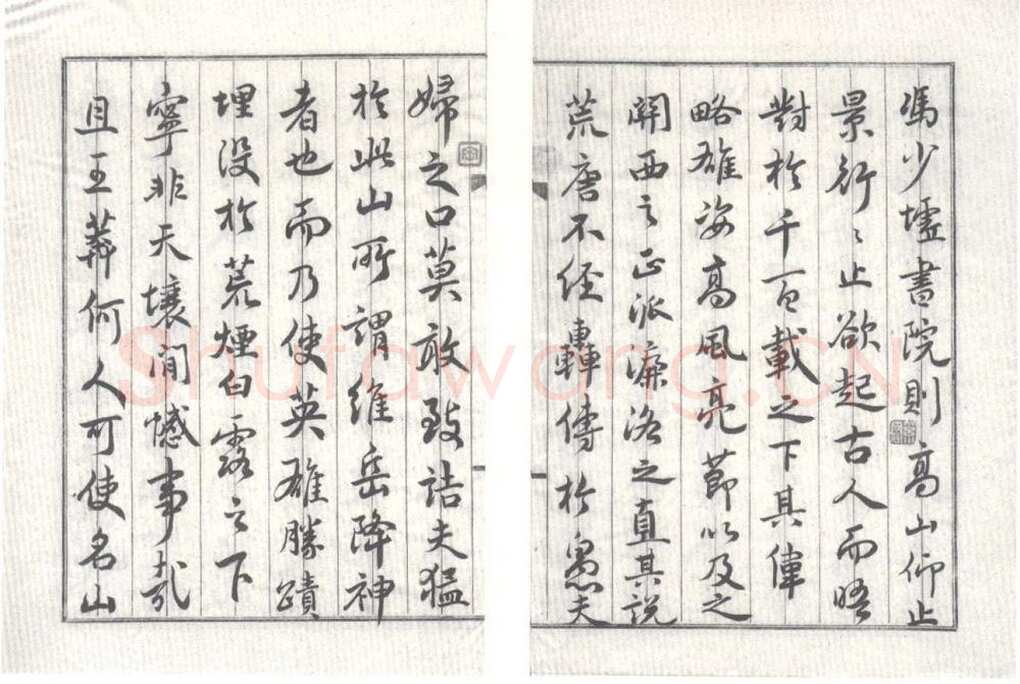 馮少墟書院則高山仰止
景行〻止欲起古人而晤
對於千百載之下其偉
略雄姿高風亮節以及之
關西之正派濂洛之直其説
荒唐不經轟傳於愚夫
婦之口莫敢致詰夫猛
於此山所謂維岳降神
者也而乃使英雄勝蹟
埋没於荒煙白露之下
寧非天壤間憾事哉
且王莽何人可使名山
Shufawang.CN